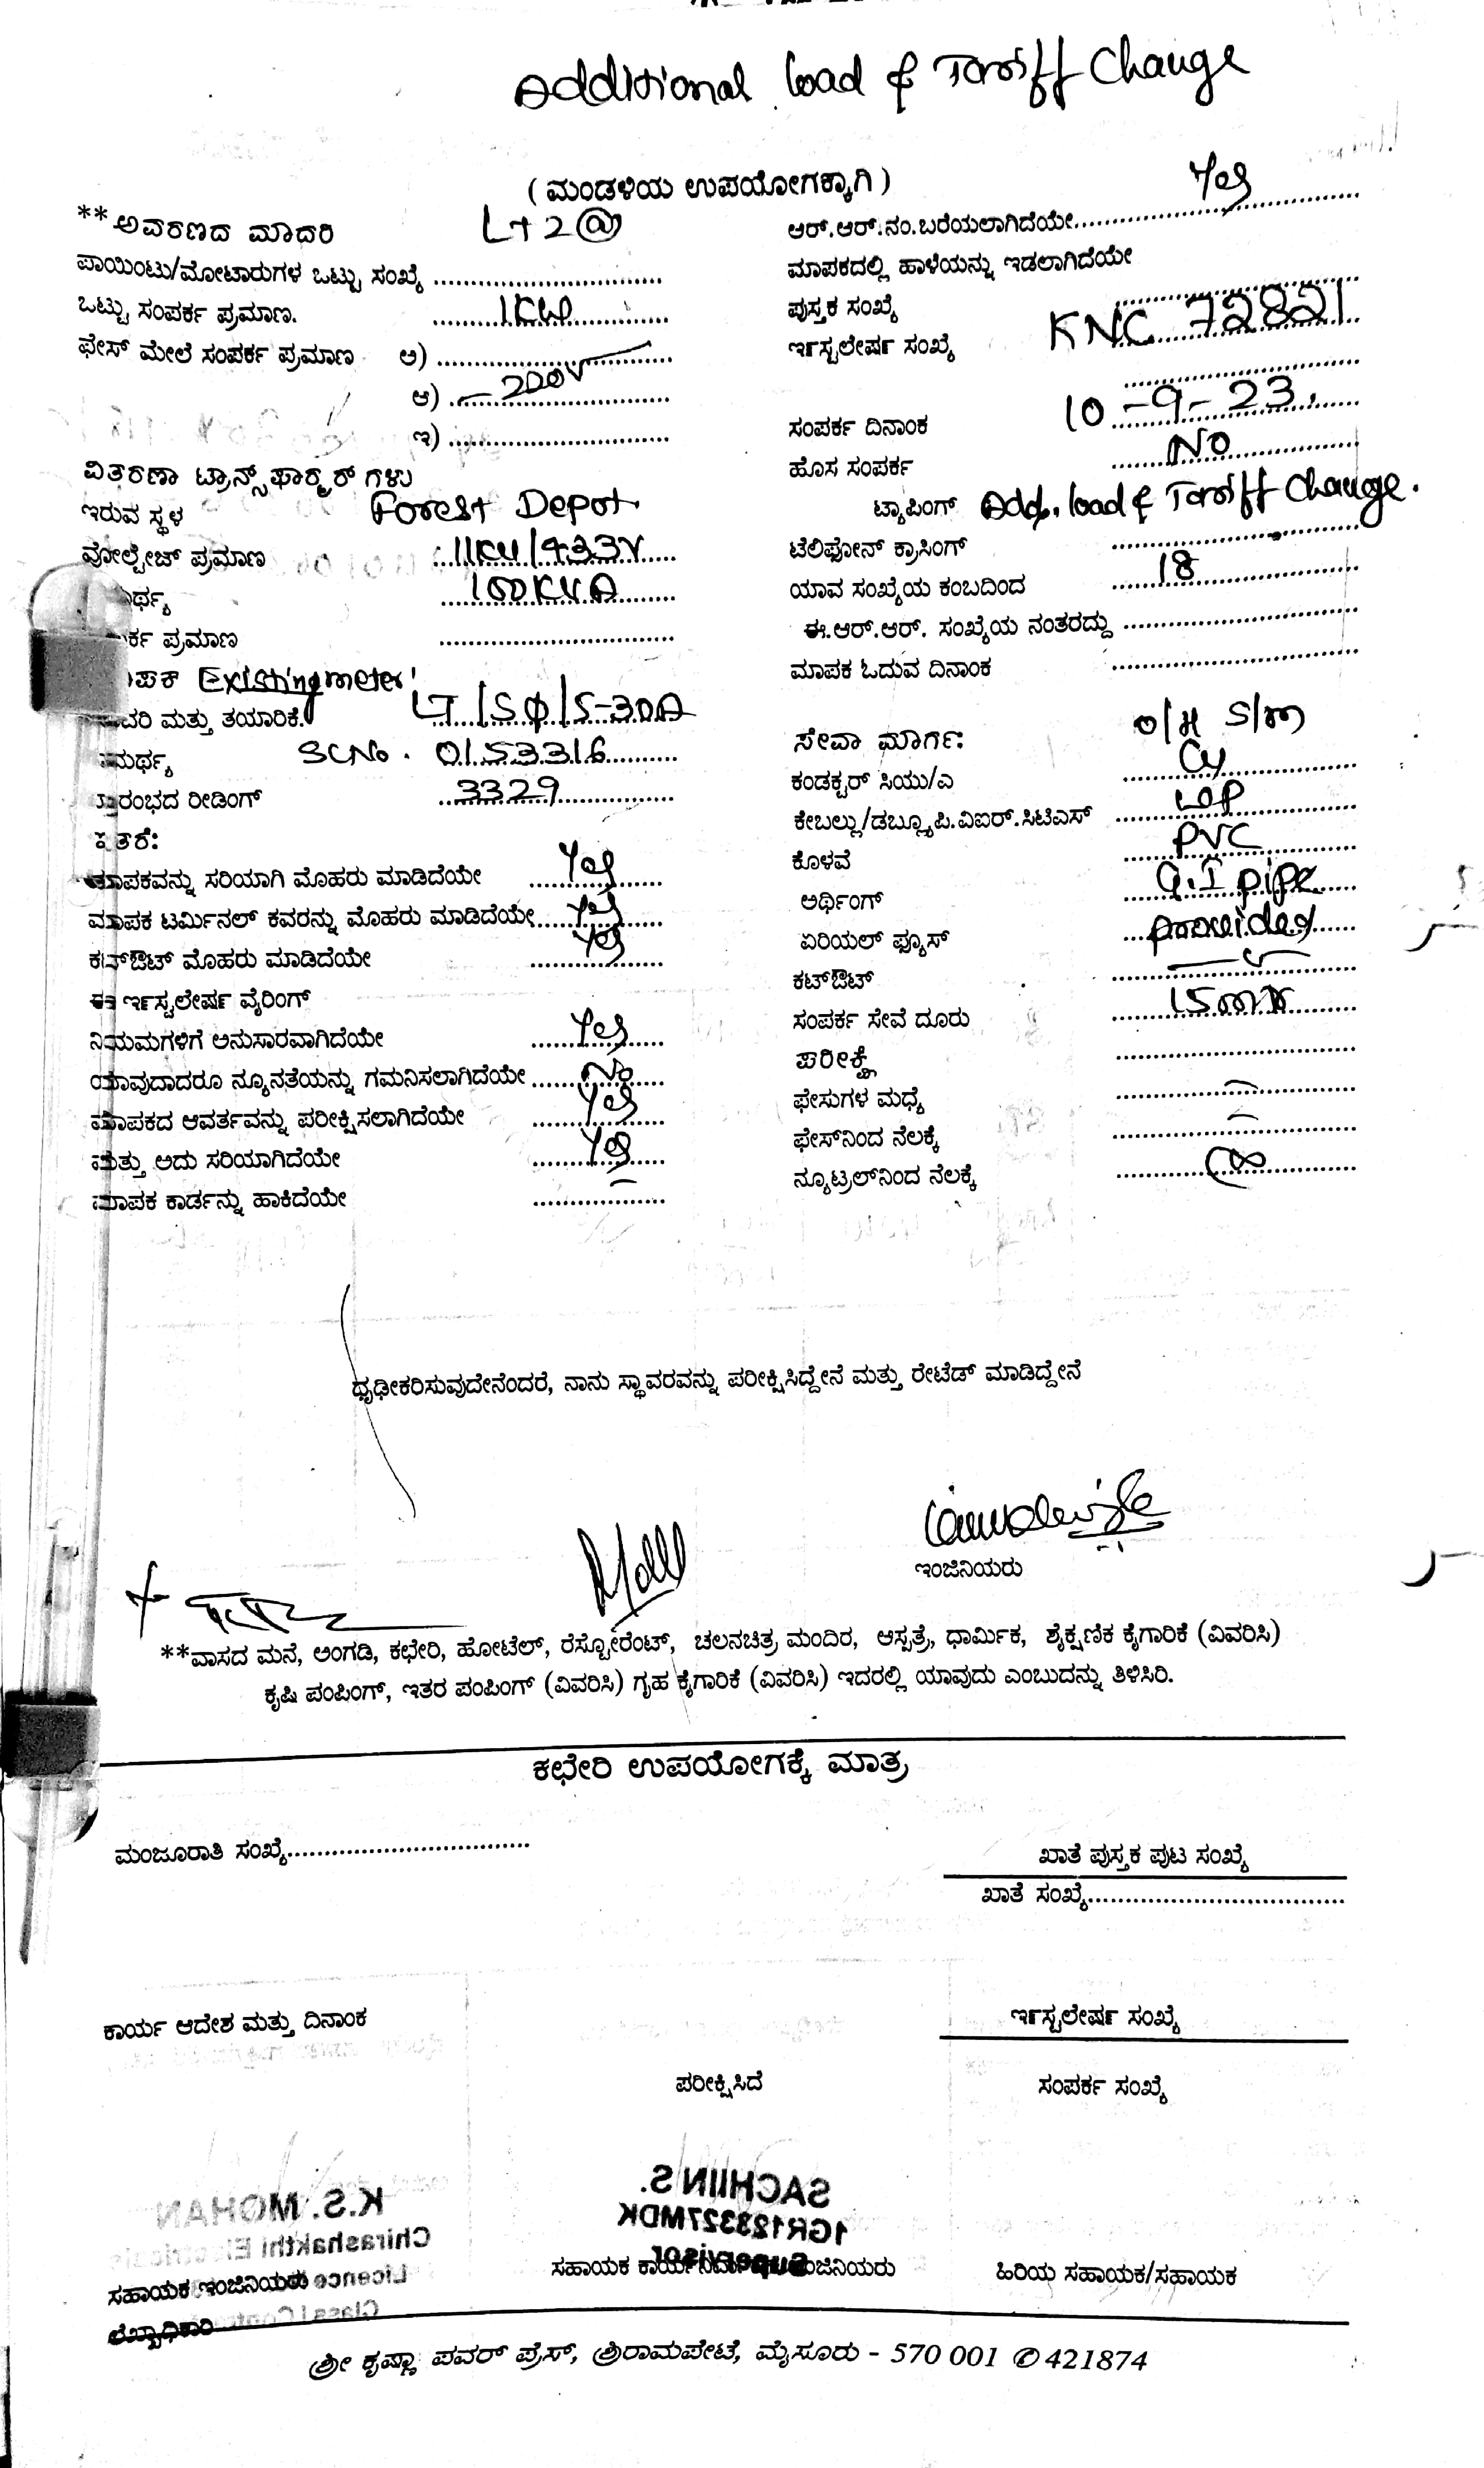 Additional load & Tariff Change
(ಮಂಡಳಿಯ ಉಪಯೋಗಕ್ಕಾಗಿ)
**ಅವರಣದ ಮಾದರಿ LT 2@
ಪಾಯಿಂಟು/ಮೋಟಾರುಗಳ ಒಟ್ಟು ಸಂಖ್ಯೆ
ಒಟ್ಟು ಸಂಪರ್ಕ ಪ್ರಮಾಣ. 1KW
ಫೇಸ್ ಮೇಲೆ ಸಂಪರ್ಕ ಪ್ರಮಾಣ ಅ)
ಆ) 200V
ಇ)
ವಿತರಣಾ ಟ್ರಾನ್ಸ್‌ಫಾರ್ಮರ್ ಗಳು
ಇರುವ ಸ್ಥಳ Forest Depot
ವೋಲ್ಟೇಜ್ ಪ್ರಮಾಣ 11KV/433V
ರ್ಥ್ಯ 100KVA
ರ್ಕ ಪ್ರಮಾಣ
ಪಕ Existing meter
ದರಿ ಮತ್ತು ತಯಾರಿಕೆ. LT/Sφ/5-30A
ಮರ್ಥ್ಯ SCNo. 0153316
ಪ್ರಾರಂಭದ ರೀಡಿಂಗ್ 3329
ಇತರೆ:
ಮಾಪಕವನ್ನು ಸರಿಯಾಗಿ ಮೊಹರು ಮಾಡಿದೆಯೇ Yes
ಮಾಪಕ ಟರ್ಮಿನಲ್ ಕವರನ್ನು ಮೊಹರು ಮಾಡಿದೆಯೇ Yes
ಕಟ್‌ಔಟ್ ಮೊಹರು ಮಾಡಿದೆಯೇ Yes
ಈ ಇನ್‌ಸ್ಟಲೇಷನ್ ವೈರಿಂಗ್
ನಿಯಮಗಳಿಗೆ ಅನುಸಾರವಾಗಿದೆಯೇ Yes
ಯಾವುದಾದರೂ ನ್ಯೂನತೆಯನ್ನು ಗಮನಿಸಲಾಗಿದೆಯೇ No
ಮಾಪಕದ ಆವರ್ತವನ್ನು ಪರೀಕ್ಷಿಸಲಾಗಿದೆಯೇ Yes
ಮತ್ತು ಅದು ಸರಿಯಾಗಿದೆಯೇ Yes
ಮಾಪಕ ಕಾರ್ಡನ್ನು ಹಾಕಿದೆಯೇ
ಆರ್.ಆರ್.ನಂ.ಬರೆಯಲಾಗಿದೆಯೇ Yes
ಮಾಪಕದಲ್ಲಿ ಹಾಳೆಯನ್ನು ಇಡಲಾಗಿದೆಯೇ
ಪುಸ್ತಕ ಸಂಖ್ಯೆ
ಇನ್‌ಸ್ಟಲೇಷನ್ ಸಂಖ್ಯೆ KNC 72821
ಸಂಪರ್ಕ ದಿನಾಂಕ 10-9-23
ಹೊಸ ಸಂಪರ್ಕ No
ಟ್ಯಾಪಿಂಗ್ Add. load & Tariff Change.
ಟೆಲಿಫೋನ್ ಕ್ರಾಸಿಂಗ್
ಯಾವ ಸಂಖ್ಯೆಯ ಕಂಬದಿಂದ 18
ಈ.ಆರ್.ಆರ್. ಸಂಖ್ಯೆಯ ನಂತರದ್ದು
ಮಾಪಕ ಓದುವ ದಿನಾಂಕ
ಸೇವಾ ಮಾರ್ಗ: O/H S/m
ಕಂಡಕ್ಟರ್ ಸಿಯು/ಎ Cu
ಕೇಬಲ್ಲು/ಡಬ್ಲ್ಯೂಪಿ.ವಿಐರ್.ಸಿಟಿಎಸ್
ಕೊಳವೆ PVC
ಅರ್ಥಿಂಗ್ G.I pipe
ಏರಿಯಲ್ ಫ್ಯೂಸ್ provided
ಕಟ್‌ಔಟ್
ಸಂಪರ್ಕ ಸೇವೆ ದೂರು
ಪರೀಕ್ಷೆ
ಫೇಸುಗಳ ಮಧ್ಯೆ
ಫೇಸ್‌ನಿಂದ ನೆಲಕ್ಕೆ
ನ್ಯೂಟ್ರಲ್‌ನಿಂದ ನೆಲಕ್ಕೆ
ಧೃಢೀಕರಿಸುವುದೇನೆಂದರೆ, ನಾನು ಸ್ಥಾವರವನ್ನು ಪರೀಕ್ಷಿಸಿದ್ದೇನೆ ಮತ್ತು ರೇಟೆಡ್ ಮಾಡಿದ್ದೇನೆ
ಇಂಜಿನಿಯರು
**ವಾಸದ ಮನೆ, ಅಂಗಡಿ, ಕಛೇರಿ, ಹೋಟೆಲ್, ರೆಸ್ಟೋರೆಂಟ್, ಚಲನಚಿತ್ರ ಮಂದಿರ, ಆಸ್ಪತ್ರೆ, ಧಾರ್ಮಿಕ, ಶೈಕ್ಷಣಿಕ ಕೈಗಾರಿಕೆ (ವಿವರಿಸಿ)
ಕೃಷಿ ಪಂಪಿಂಗ್, ಇತರ ಪಂಪಿಂಗ್ (ವಿವರಿಸಿ) ಗೃಹ ಕೈಗಾರಿಕೆ (ವಿವರಿಸಿ) ಇದರಲ್ಲಿ ಯಾವುದು ಎಂಬುದನ್ನು ತಿಳಿಸಿರಿ.
ಕಛೇರಿ ಉಪಯೋಗಕ್ಕೆ ಮಾತ್ರ
ಮಂಜೂರಾತಿ ಸಂಖ್ಯೆ
ಖಾತೆ ಪುಸ್ತಕ ಪುಟ ಸಂಖ್ಯೆ
ಖಾತೆ ಸಂಖ್ಯೆ
ಕಾರ್ಯ ಆದೇಶ ಮತ್ತು ದಿನಾಂಕ
ಇನ್‌ಸ್ಟಲೇಷನ್ ಸಂಖ್ಯೆ
ಪರೀಕ್ಷಿಸಿದೆ
ಸಂಪರ್ಕ ಸಂಖ್ಯೆ
K.S. MOHAN
Chirashakthi Electricals
SACHIIN S.
1GR128327MDK
Supervisor
ಸಹಾಯಕ ಇಂಜಿನಿಯರು
ಲೆಖ್ಖಾಧಿಕಾರಿ
ಹಿರಿಯ ಸಹಾಯಕ/ಸಹಾಯಕ
ಶ್ರೀ ಕೃಷ್ಣಾ ಪವರ್ ಪ್ರೆಸ್, ಶ್ರೀರಾಮಪೇಟೆ, ಮೈಸೂರು - 570 001 ✆421874